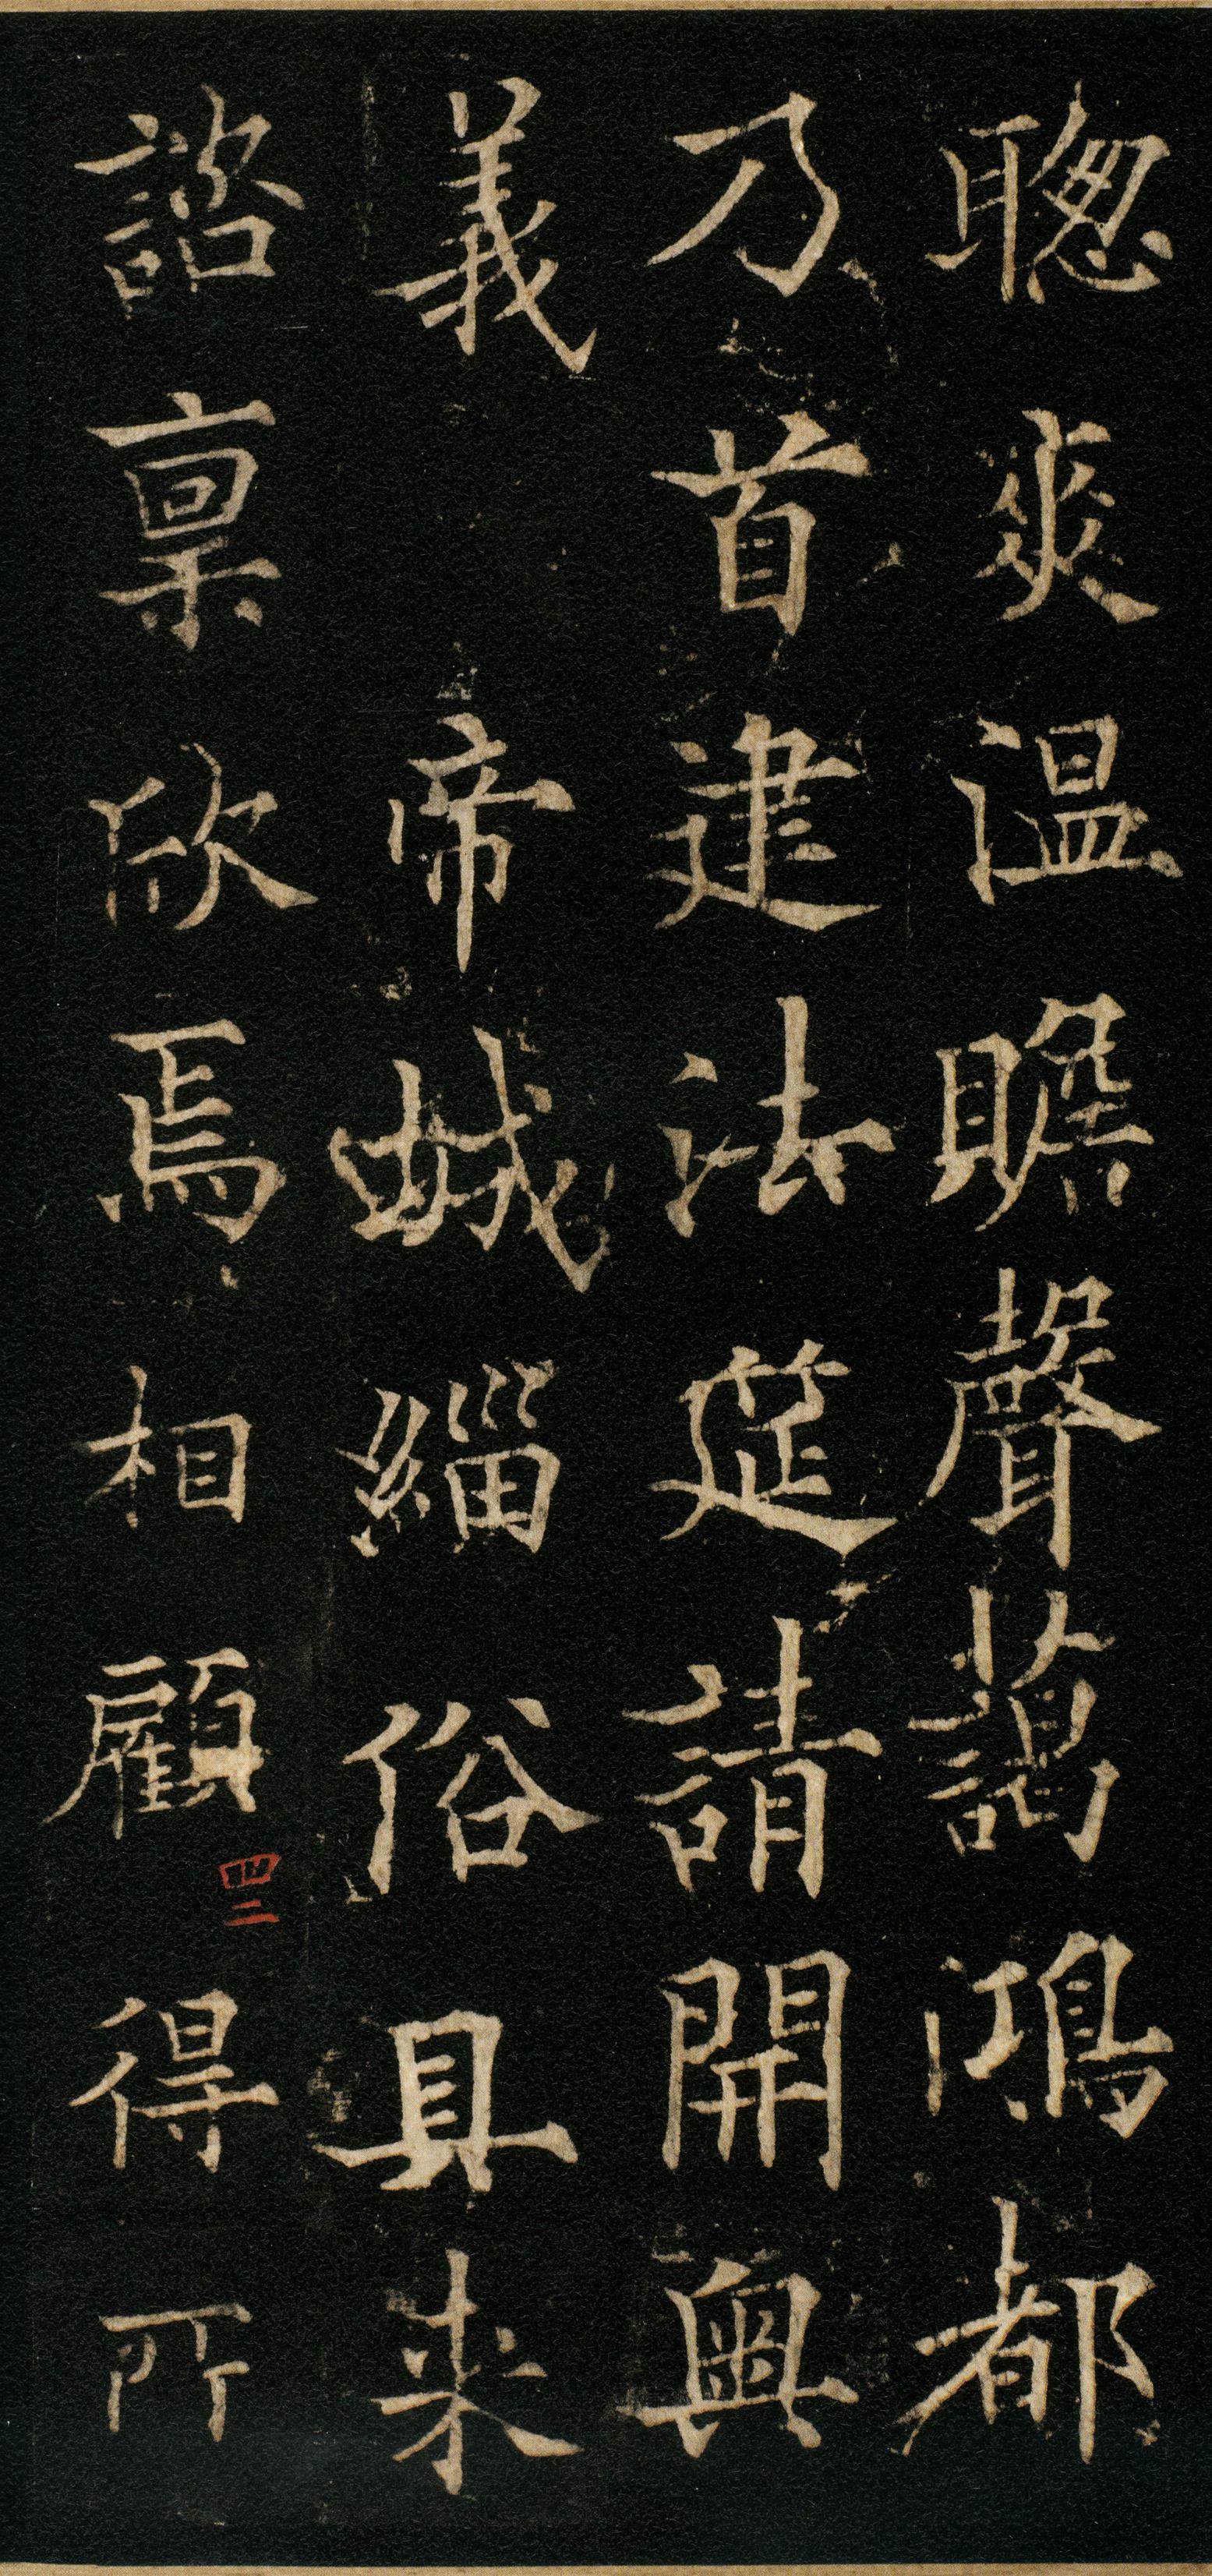 聦爽温贍聲藹鴻都
乃首建法筵請開奥
義 帝城緇俗具来
諮稟欣焉相顧得所
四二